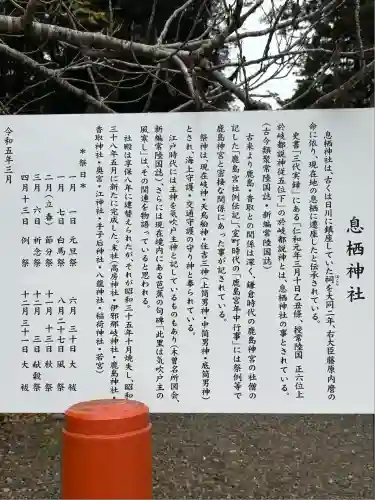 息栖神社
息栖神社は、古くは日川に鎮座していた祠を大同二年、右大臣藤原内麿の
命に依り、現在地の息栖に遷座したと伝承されている。
史書「三代実録」にある「仁和元年三月十日乙丑條、授常陸国 正六位上
於岐都説神従五位下」の於岐都説神とは、息栖神社の事とされている。
(古今類聚常陸国誌・新編常陸国誌)
古来より鹿島・香取との関係は深く、鎌倉時代の鹿島神宮の社僧の
記した「鹿島宮社例伝記」、室町時代の「鹿島宮年中行事」には祭例等で
鹿島神宮と密接な関係にあった事が記されている。
祭神は、現在岐神・天鳥船神・住吉三神(上筒男神・中筒男神・底筒男神)
とされ、海上守護・交通守護の守り神と尊られている。
江戸時代には主神を気吹戸主神と記しているものもあり(木曽名所図会、
新編常陸国誌)、さらには現在境内にある芭蕉の句碑「此里は気吹戸主の
風寒し」は、その関連を物語っていると思われる。
社殿は享保八年に建替えられたが、それが昭和三十五年十月焼失し、昭和
三十八年五月に新たに完成した。末社(高房神社・伊邪那岐神社・鹿島神社・
香取神社・奥宮・江神社・手子后神社・八龍神社・稲荷神社・若宮)
*祭日*
一月 一日 元旦祭 六月 三十日 大祓
一月 七日 白馬祭 八月二十七日 風祭
二月(立春) 節分祭 十月 十三日 秋祭
三月 六日 祈念祭 十二月 三日 献穀祭
四月十三日 例祭 十二月三十一日 大祓
令和五年三月